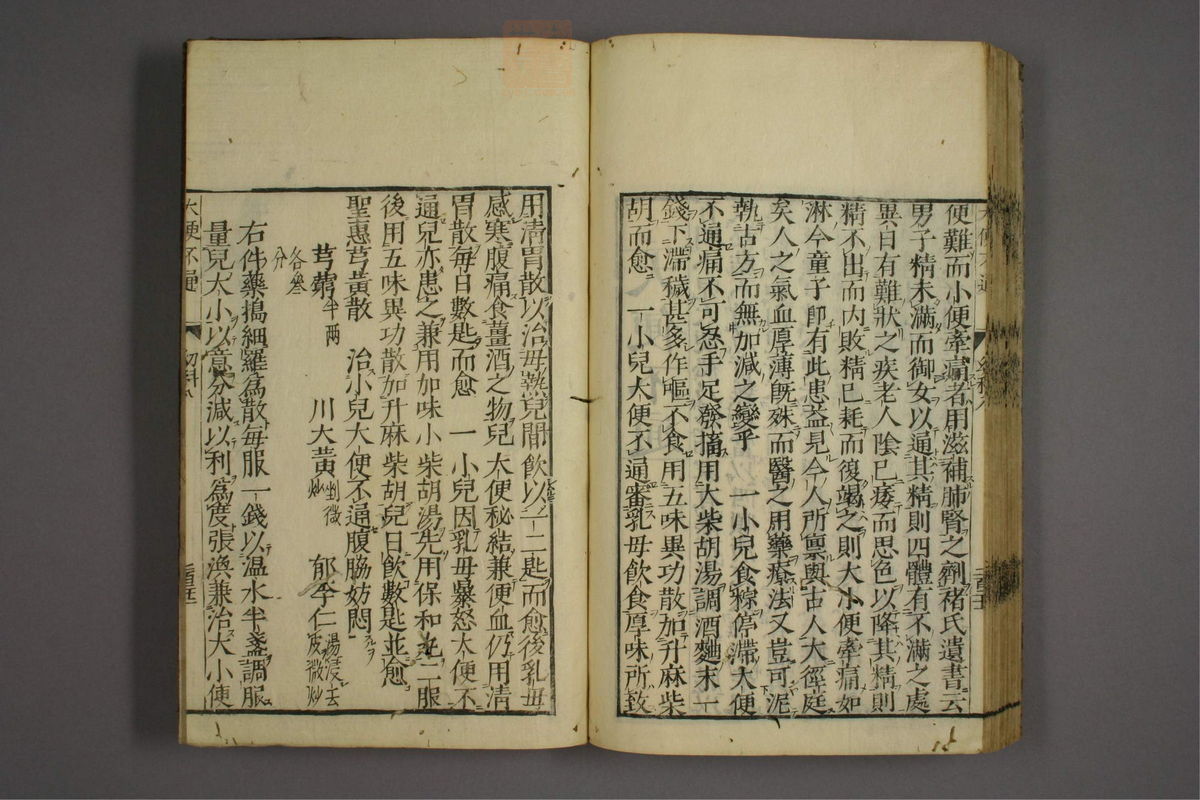 便難而小便牽痛者用滋補肺腎之劑褚氏遺書云
男子精未滿而御女以通其精則四體有不滿之處
異日有難狀之疾老人陰已痿而思色以降其精則
精不出而内敗精已耗而復竭之則大小便牽痛如
淋今童子卽有此患益見今人所禀與古人大徑庭
矣人之氣血厚薄既殊而醫之用藥療法又豈可泥
執古方而無加減之變乎 一小兒食粽停滯大便
不通痛不可忍手足發搐用大柴胡湯調酒麯末一
錢下滯穢甚多作嘔不食用五味異功散加升麻柴
胡而愈 一小兒大便不通審乳母飲食厚味所致
用清胃散以治母熱兒間飲以一二匙而愈後乳母
感寒腹痛食薑酒之物兒大便秘結兼便血仍用清
胃散毎日數匙而愈 一小兒因乳母暴怒大便不
通兒亦患之兼用加味小柴胡湯先用保和丸二服
後用五味異功散加升麻柴胡兒日飲數匙並愈
聖惠芎黃散 治小兒大便不通腹脇妨悶
芎藭半兩 川大黃剉微炒 郁李仁湯浸去皮微炒
各叄分
右件藥搗細羅爲散毎服一錢以温水半盞調服
量兒大小以意分減以利爲度張渙兼治大小便
大便不通 幼科八